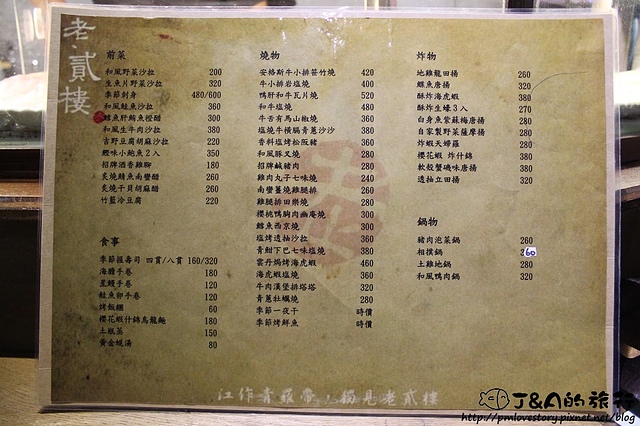 老貳樓
前菜
和風野菜沙拉 200
生魚片野菜沙拉 320
季節刺身 480/600
和風鮭魚沙拉 360
鱈魚肝鮪魚橙醋 300
和風生牛肉沙拉 380
吉野豆腐胡麻沙拉 220
鰹味小鮑魚2入 350
招牌酒香雞腳 180
炙燒鯖魚南蠻醋 260
炙燒干貝胡麻醋 260
竹籃冷豆腐 220
食事
季節握壽司 四貫/八貫 160/320
海膽手卷 180
星鰻手卷 120
鮭魚卵手卷 120
烤飯糰 60
櫻花蝦什錦烏龍麵 180
土瓶蒸 150
黃金蜆湯 80
燒物
安格斯牛小排笹竹燒 420
牛小排岩塩燒 400
鴨肝和牛瓦片燒 520
和牛塩燒 480
牛舌有馬山椒燒 360
塩燒牛橫膈青蔥沙沙 380
香料塩烤松阪豬 360
和風豚叉燒 280
招牌雞豬肉 280
雞肉丸子七味燒 240
南蠻薑燒雞腿排 260
雞腿排田樂燒 280
櫻桃鴨胸肉幽庵燒 300
鱈魚西京燒 300
塩烤透抽沙拉 360
青魽下巴七味塩燒 380
雲丹焗烤海虎蝦 460
海虎蝦塩燒 360
牛肉漢堡排塔塔 320
青蔥牡蠣燒 280
季節一夜干 時價
季節烤鮮魚 時價
炸物
地雞龍田揚 260
鰈魚唐揚 320
酥炸海虎蝦 380
酥炸生蠔3入 270
白身魚紫蘇梅唐揚 280
自家製野菜薩摩揚 280
炸蝦天婦羅 280
櫻花蝦 炸什錦 380
軟殼蟹磯味唐揚 380
透抽立田揚 320
鍋物
豬肉泡菜鍋 260
相撲鍋 260
土雞地鍋 280
和風鴨肉鍋 320
江作青羅帶，獨見老貳樓
J&A的旅行
http://pmlovestory.pixnet.net/blog